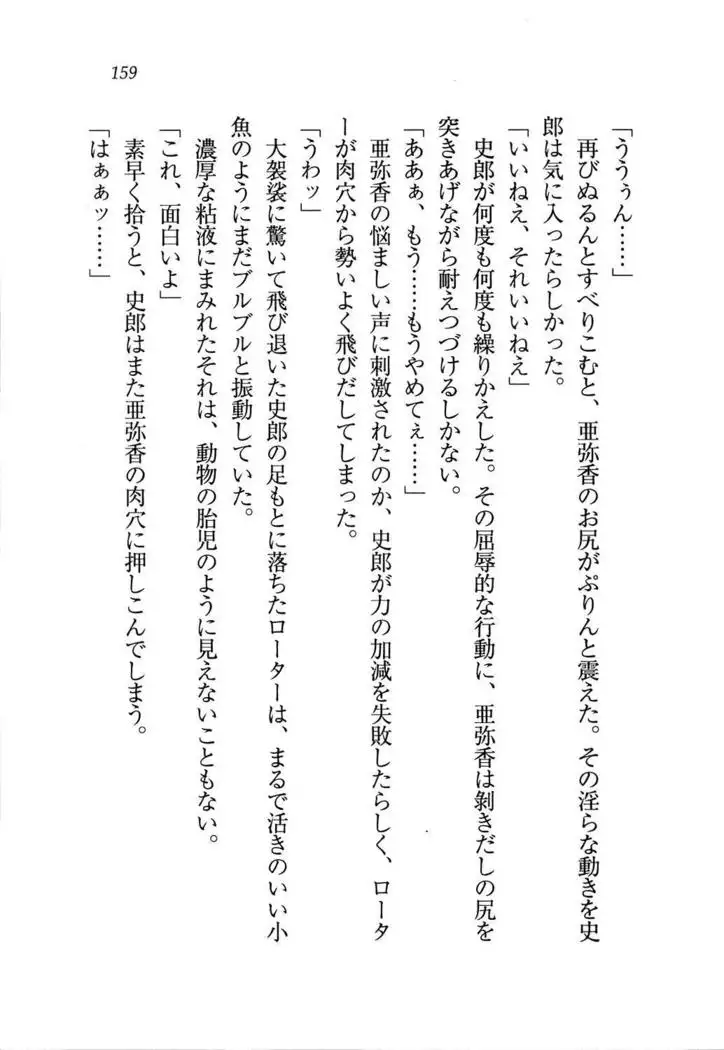 159
「ううぅん……」
　再びぬるんとすべりこむと、亜弥香のお尻がぷりんと震えた。その淫らな動きを史
郎は気に入ったらしかった。
「いいねえ、それいいねえ」
　史郎が何度も何度も繰りかえした。その屈辱的な行動に、亜弥香は剝きだしの尻を
突きあげながら耐えつづけるしかない。
「ああぁ、もう……もうやめてぇ……」
　亜弥香の悩ましい声に刺激されたのか、史郎が力の加減を失敗したらしく、ロータ
ーが肉穴から勢いよく飛びだしてしまった。
「うわッ」
　大袈裟に驚いて飛び退いた史郎の足もとに落ちたローターは、まるで活きのいい小
魚のようにまだブルブルと振動していた。
　濃厚な粘液にまみれたそれは、動物の胎児のように見えないこともない。
「これ、面白いよ」
　素早く拾うと、史郎はまた亜弥香の肉穴に押しこんでしまう。
「はぁぁッ……」